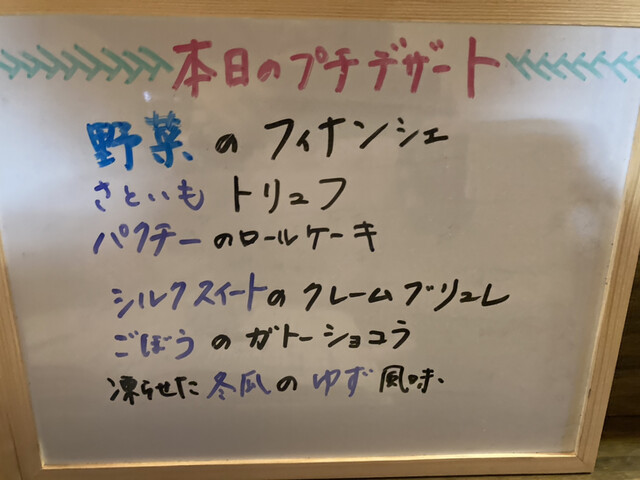 本日のプチデザート
野菜のフィナンシェ
さといもトリュフ
パクチーのロールケーキ
シルクスイートのクレームブリュレ
ごぼうのガトーショコラ
凍らせた冬瓜のゆず風味、